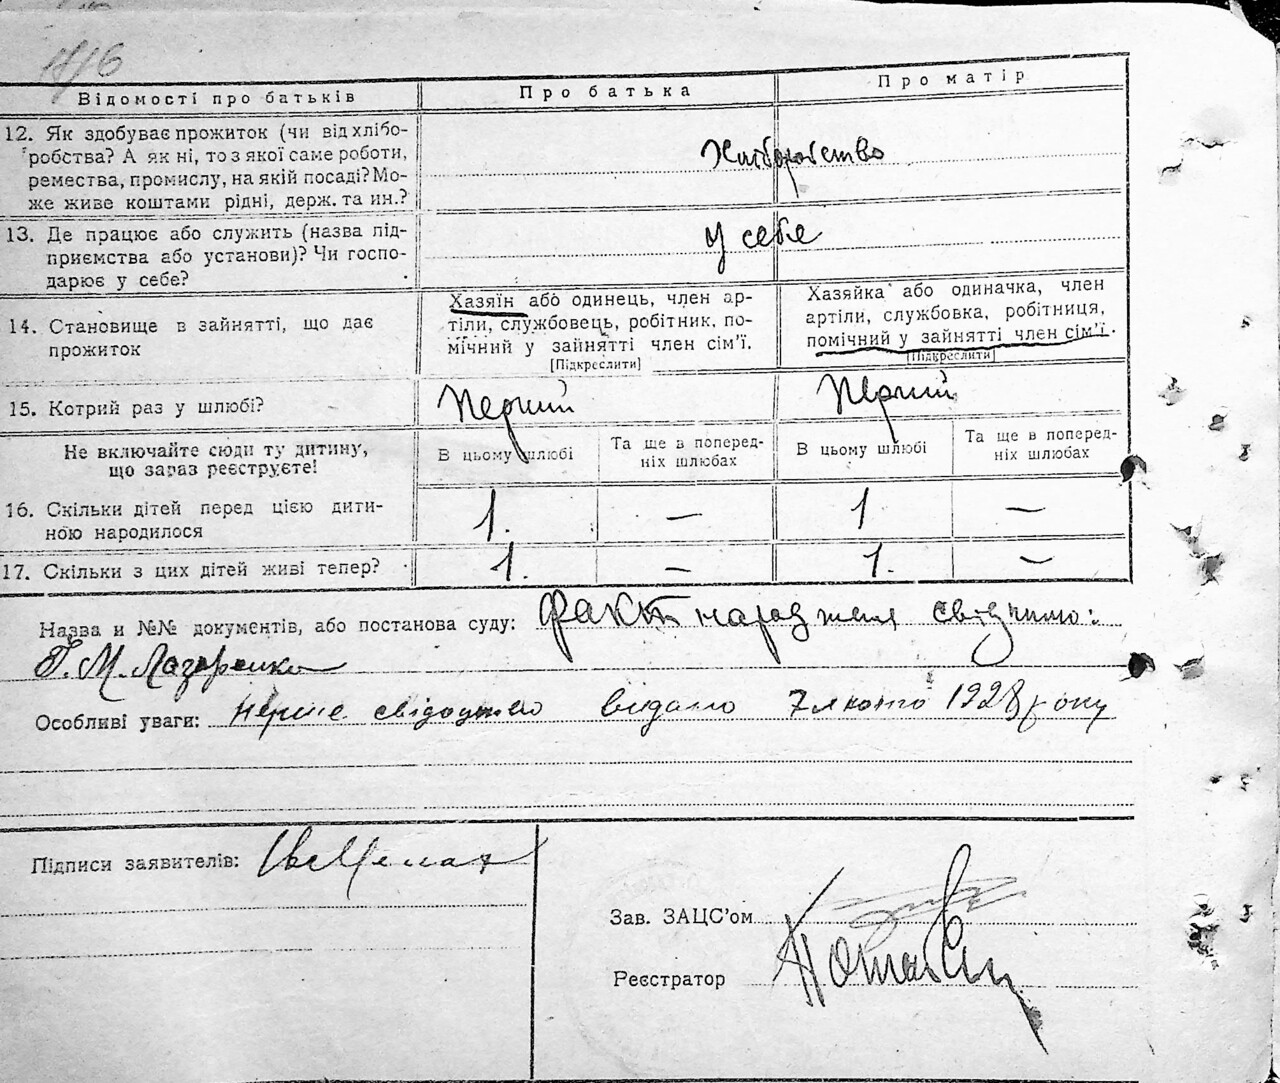 716
Відомості про батьків
Про батька
Про матір
12. Як здобуває прожиток (чи від хлібо-
робства? А як ні, то з якої саме роботи,
ремества, промислу, на якій посаді? Мо-
же живе коштами рідні, держ. та ин.?
Хліборобство
13. Де працює або служить (назва під-
приємства або установи)? Чи госпо-
дарює у себе?
у себе
14. Становище в зайнятті, що дає
прожиток
Хазяїн або одинець, член ар-
тіли, службовець, робітник, по-
мічний у зайнятті член сім'ї.
[Підкреслити]
Хазяйка або одиначка, член
артіли, службовка, робітниця,
помічний у зайнятті член сім'ї.
[Підкреслити]
15. Котрий раз у шлюбі?
Перший
Перший
Не включайте сюди ту дитину,
що зараз реєструєте!
В цьому шлюбі
Та ще в поперед-
ніх шлюбах
В цьому шлюбі
Та ще в поперед-
ніх шлюбах
16. Скільки дітей перед цією дити-
ною народилося
1. — 1 —
17. Скільки з цих дітей живі тепер?
1. — 1. —
Назва и №№ документів, або постанова суду: Факт народження свідчимо:
Г. М. Лазаренко
Особливі уваги: перше свідоцтво видано 7 лютого 1928 року
Підписи заявителів:
Зав. ЗАЦС'ом
Реєстратор